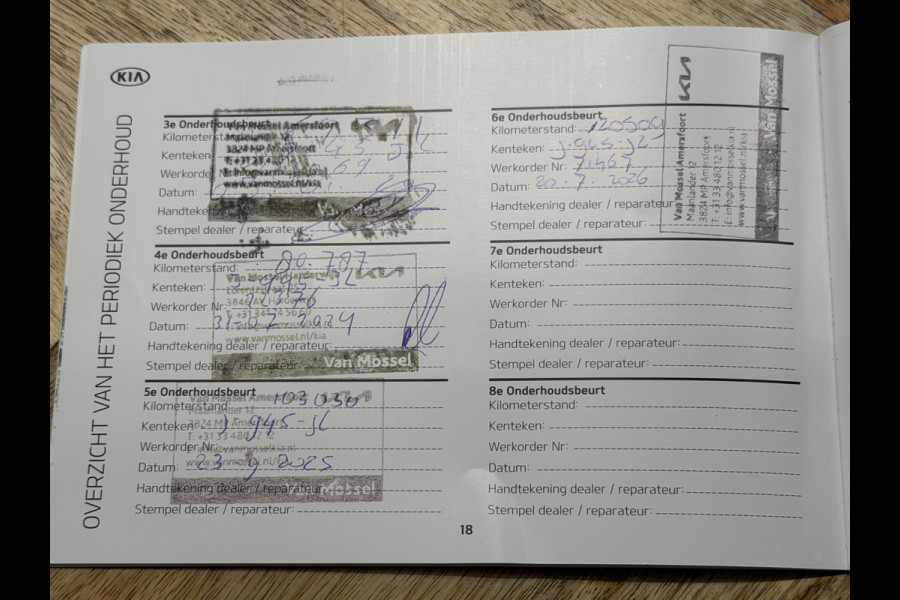 KIA
OVERZICHT VAN HET PERIODIEK ONDERHOUD
3e Onderhoudsbeurt
Kilometerstand:
Kenteken:
Werkorder Nr:
Datum:
Handtekening
Stempel dealer / reparateur:
Van Mossel Amersfoort
Maanlander 12
3824 MP Amersfoort
T: +31 33 480 12 12
www.vanmossel.nl/kia
KIA
4e Onderhoudsbeurt
Kilometerstand: 80.787
Kenteken: J-945-JL
Werkorder Nr:
Datum: 31-07-2024
Handtekening dealer / reparateur:
Stempel dealer / reparateur:
Van Mossel Harderwijk
3846 AV Harderwijk
www.vanmossel.nl/kia
KIA
Van Mossel
5e Onderhoudsbeurt
Kilometerstand: 103030
Kenteken: J-945-JL
Werkorder Nr:
Datum: 23 9 2025
Handtekening dealer / reparateur:
Stempel dealer / reparateur:
Van Mossel Amersfoort
Maanlander 12
3824 MP Amersfoort
T: +31 33 480 12 12
www.vanmossel.nl/kia
Van Mossel
6e Onderhoudsbeurt
Kilometerstand:
Kenteken: J-945-JL
Werkorder Nr:
Datum: 20-7-2026
Handtekening dealer / reparateur:
Stempel dealer / reparateur:
KIA
Van Mossel Amersfoort
Maanlander 12
3824 MP Amersfoort
T: +31 33 480 12 12
E: info@vanmosselkia.nl
www.vanmossel.nl/kia
Van Mossel
7e Onderhoudsbeurt
Kilometerstand:
Kenteken:
Werkorder Nr:
Datum:
Handtekening dealer / reparateur:
Stempel dealer / reparateur:
8e Onderhoudsbeurt
Kilometerstand:
Kenteken:
Werkorder Nr:
Datum:
Handtekening dealer / reparateur:
Stempel dealer / reparateur:
18